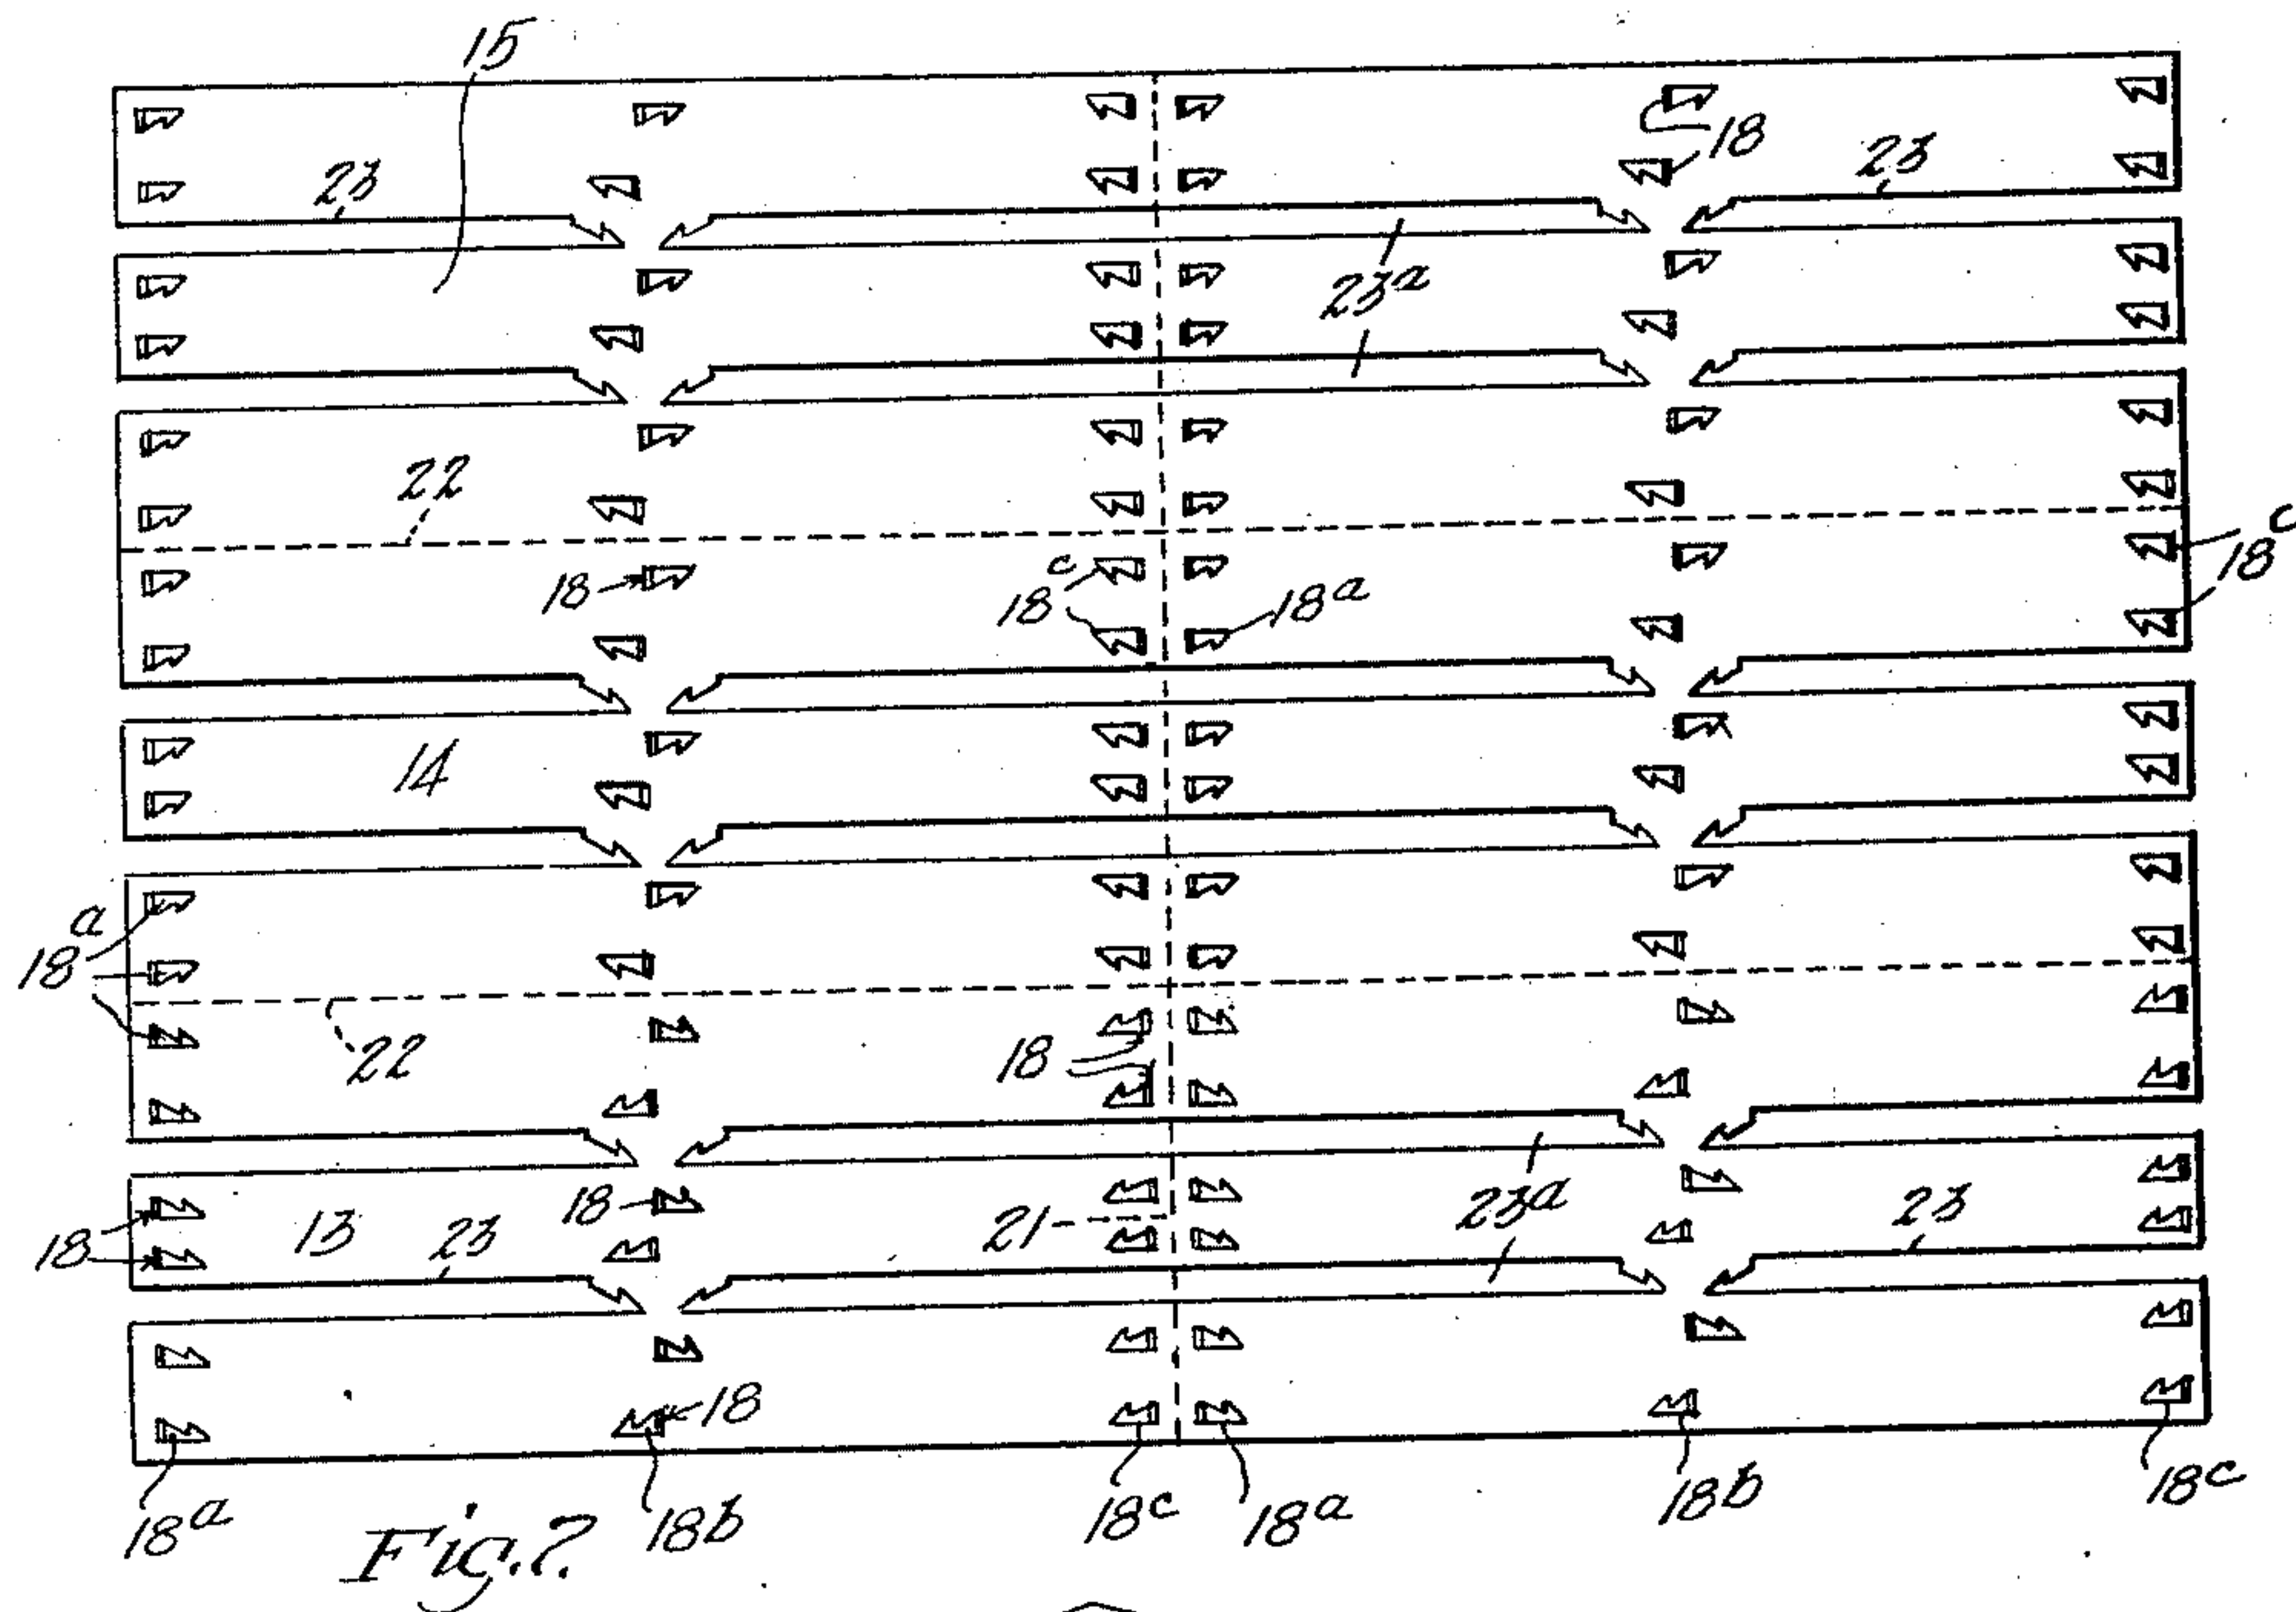 15
18
23
23
23a
22
18
18c
18a
18c
14
18a
22
18
18
18
13
23
21
23a
23
18
18a
18b
18c
18a
18b
18c
Fig. 2.